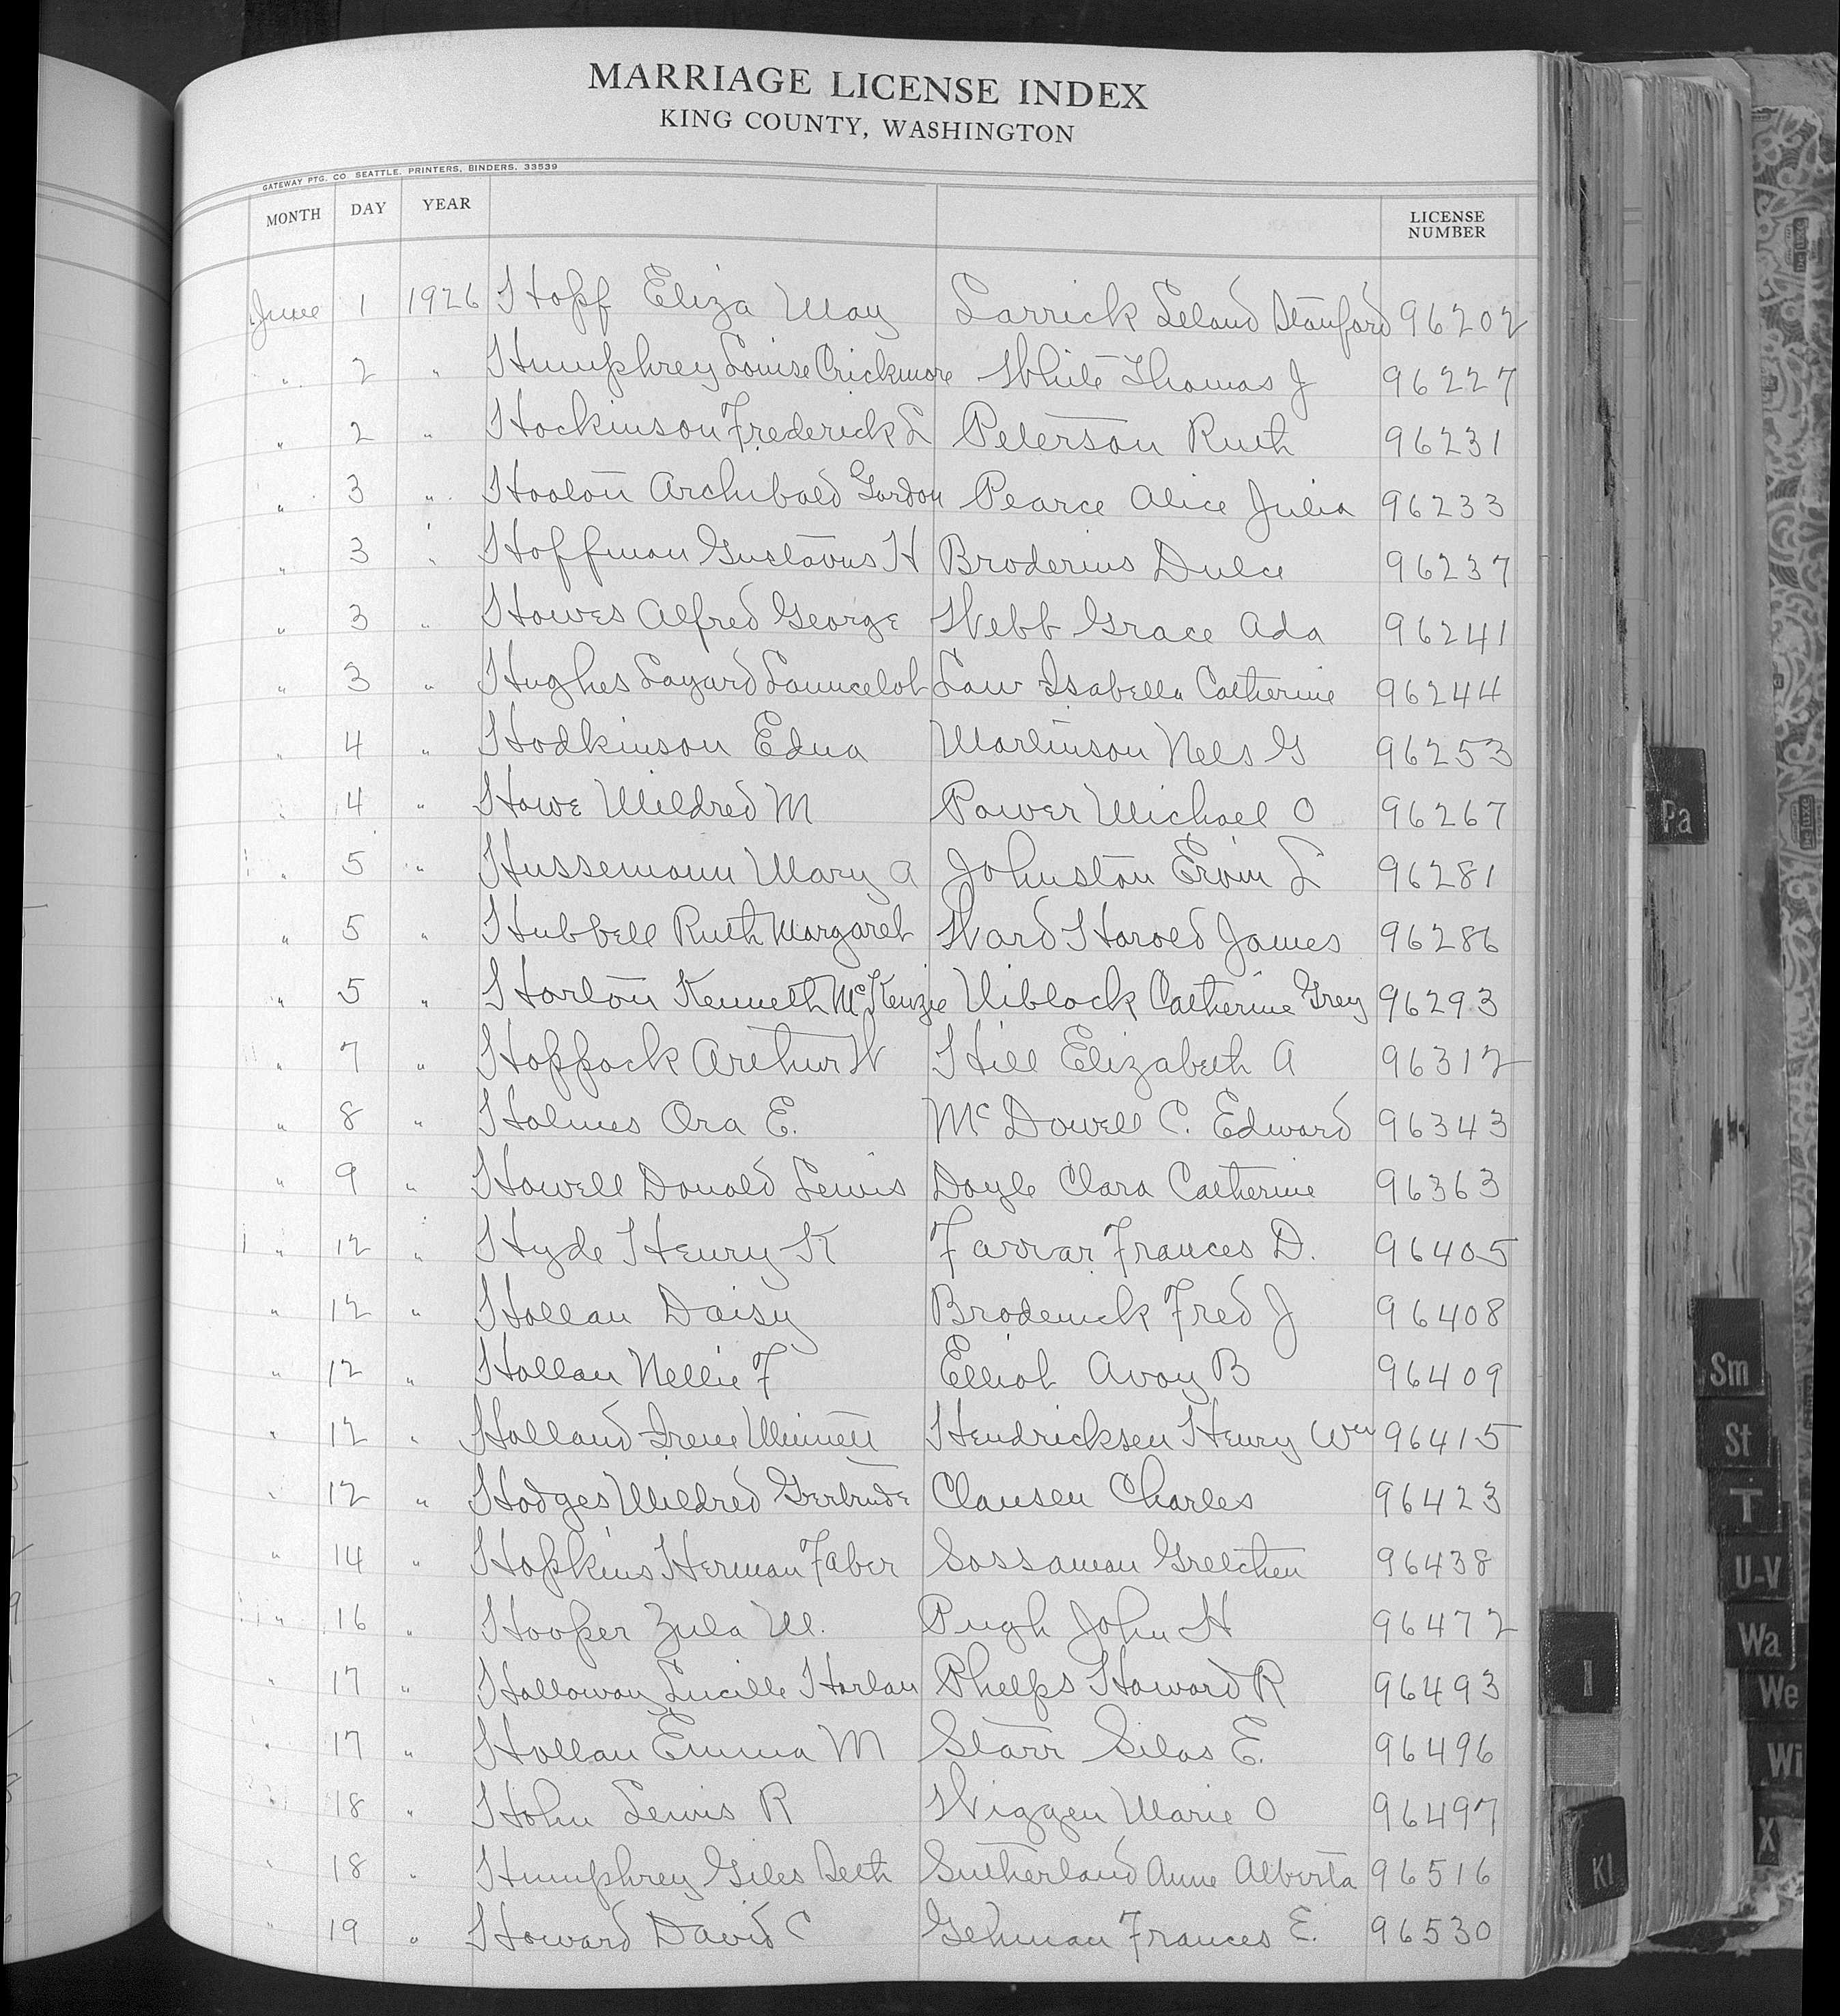 MARRIAGE LICENSE INDEX
KING COUNTY, WASHINGTON
GATEWAY PTG. CO. SEATTLE. PRINTERS, BINDERS. 33539
MONTH DAY YEAR LICENSE NUMBER
June 1 1926 Hopf Eliza May Larrick Leland Stanford 96202
" 2 " Humphrey Louise Crickmore White Thomas J 96227
" 2 " Hockinson Frederick L Peterson Ruth 96231
" 3 " Hooton Archibald Gordon Pearce Alice Julia 96233
" 3 " Hoffman Gustavus H Broderius Dulce 96237
" 3 " Howes Alfred George Webb Grace Ada 96241
" 3 " Hughes Layard Launcelot Law Isabella Catherine 96244
" 4 " Hodkinson Edna Martinson Nels G 96253
" 4 " Howe Mildred M Power Michael O 96267
" 5 " Hussemann Mary A Johnston Ervin L 96281
" 5 " Hubbell Ruth Margaret Ward Harold James 96286
" 5 " Horton Kenneth McKenzie Niblock Catherine Grey 96293
" 7 " Hoppock Arthur W Hill Elizabeth A 96312
" 8 " Holmes Ora E. McDowell C. Edward 96343
" 9 " Howell Donald Lewis Doyle Clara Catherine 96363
" 12 " Hyde Henry K Farrar Frances D. 96405
" 12 " Hollan Daisy Broderick Fred J 96408
" 12 " Hollan Nellie F Elliot Avoy B 96409
" 12 " Holland Irene Minnett Hendricksen Henry Wm 96415
" 12 " Hodges Mildred Gertrude Clausen Charles 96423
" 14 " Hopkins Herman Faber Sossaman Gretchen 96438
" 16 " Hooper Zula M. Pugh John H 96472
" 17 " Holloway Lucille Harlan Phelps Howard R 96493
" 17 " Hollan Emma M Starr Silas E. 96496
" 18 " Hohn Lewis R Wiggen Marie O 96497
" 18 " Humphrey Giles Seth Sutherland Anne Alberta 96516
" 19 " Howard David C Gehman Frances E. 96530
Pa
Sm
St
T
U-V
Wa
We
Wi
X
I
Kl